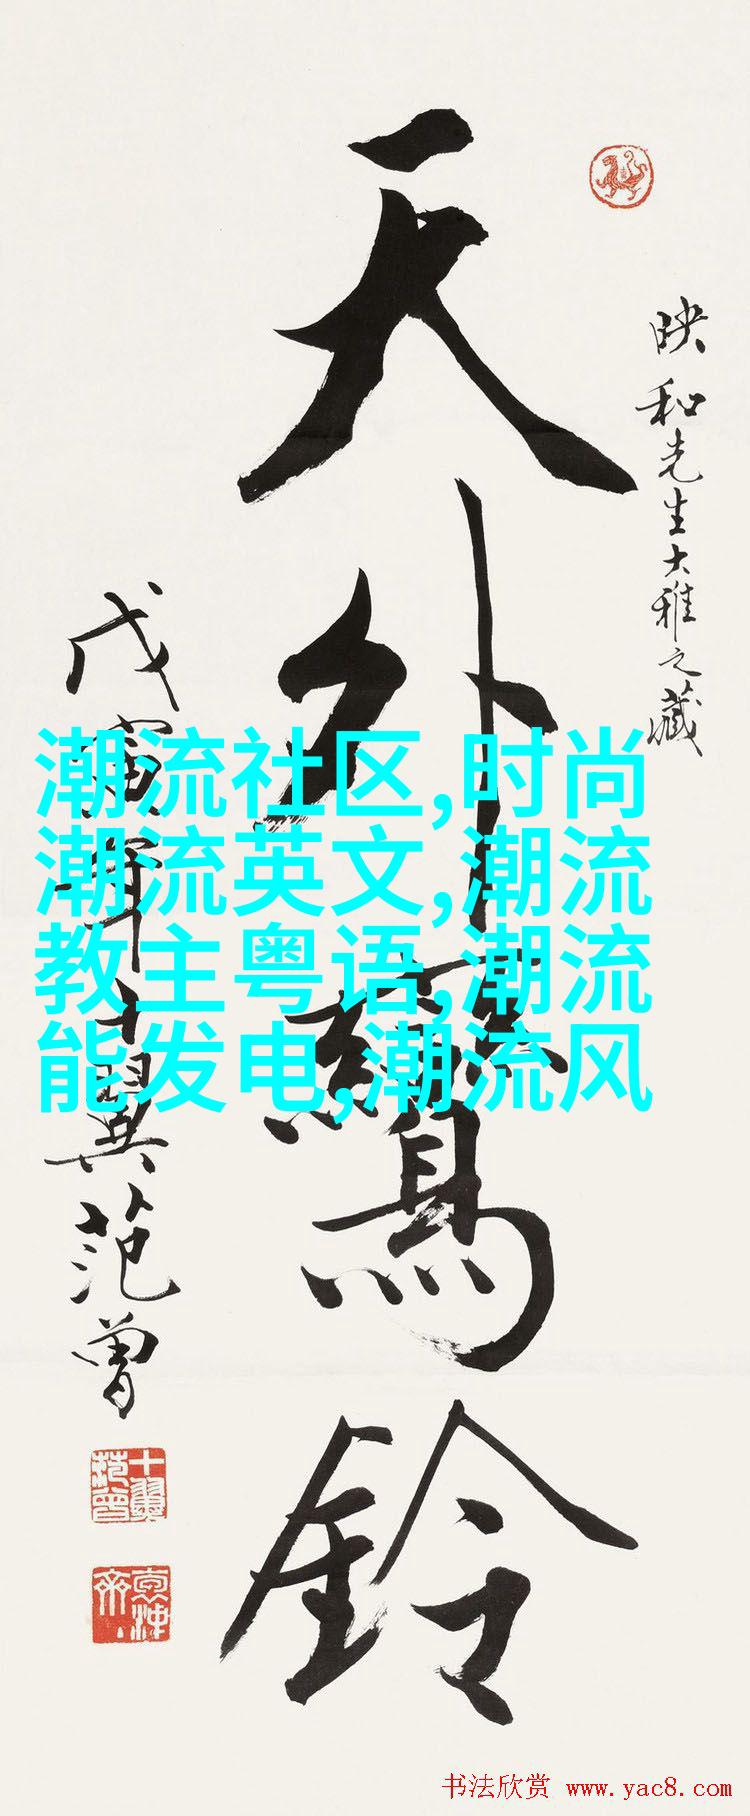 天外鸞鈴
映和先生大雅之藏
戊寅年十翼范曾
十翼范曾
潮流社区,时尚
潮流英文,潮流
教主粤语,潮流
能发电,潮流风
书法欣赏 www.yac8.com